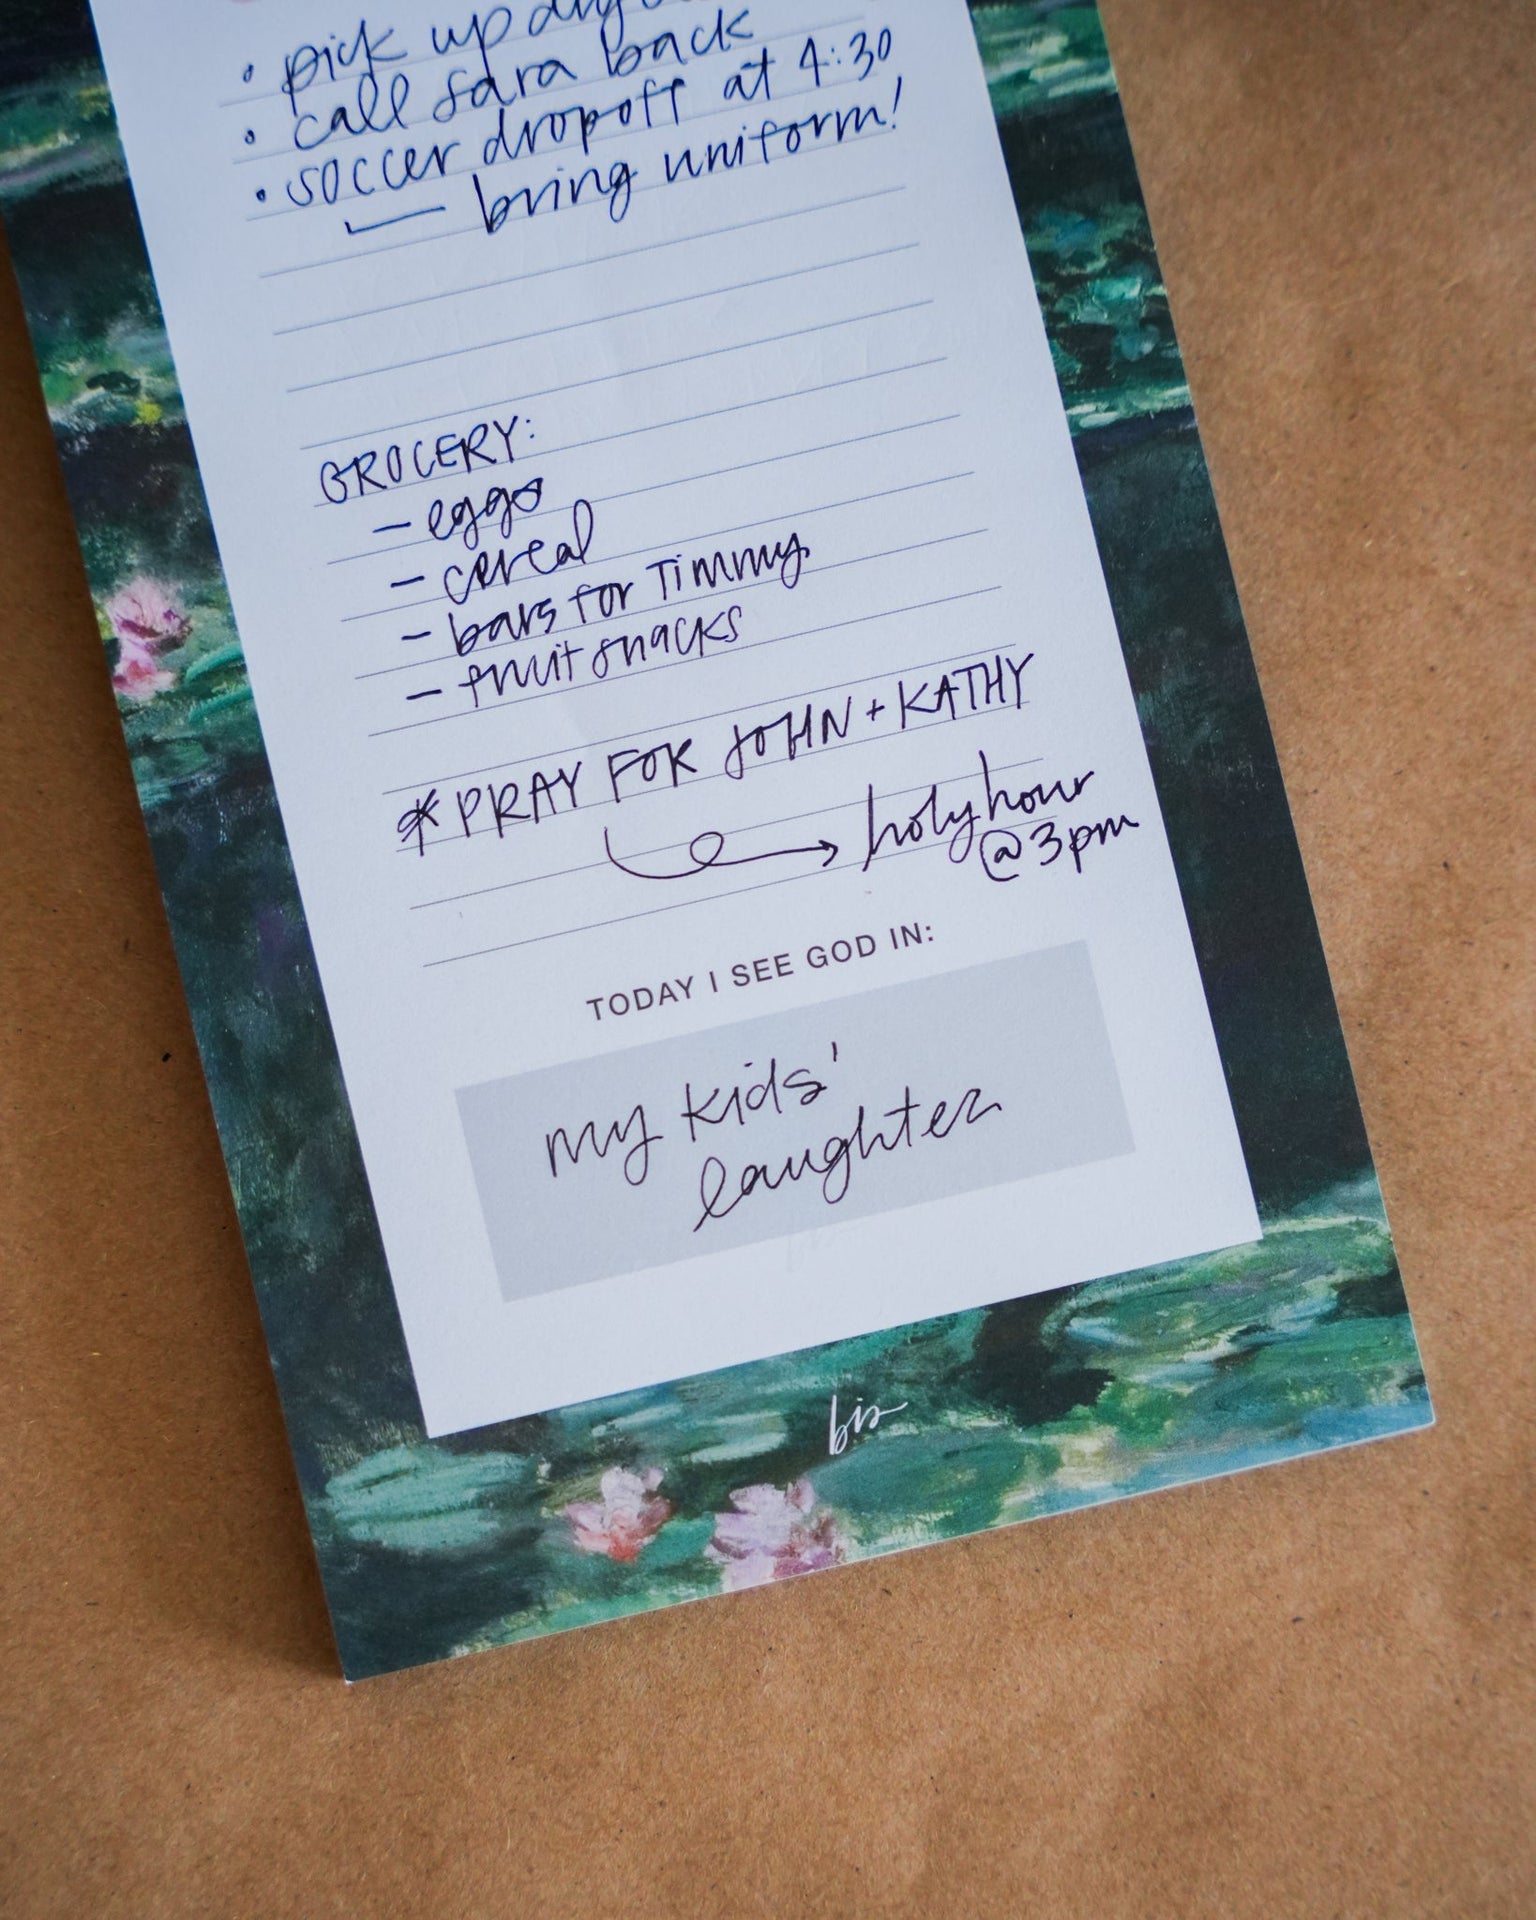 • pick up
• call sara back
• soccer dropoff at 4:30
bring uniform!
GROCERY:
– eggs
– cereal
– bars for Timmy
– fruit snacks
* PRAY FOR JOHN + KATHY
holy hour
@ 3pm
TODAY I SEE GOD IN:
my kids'
laughter
bis